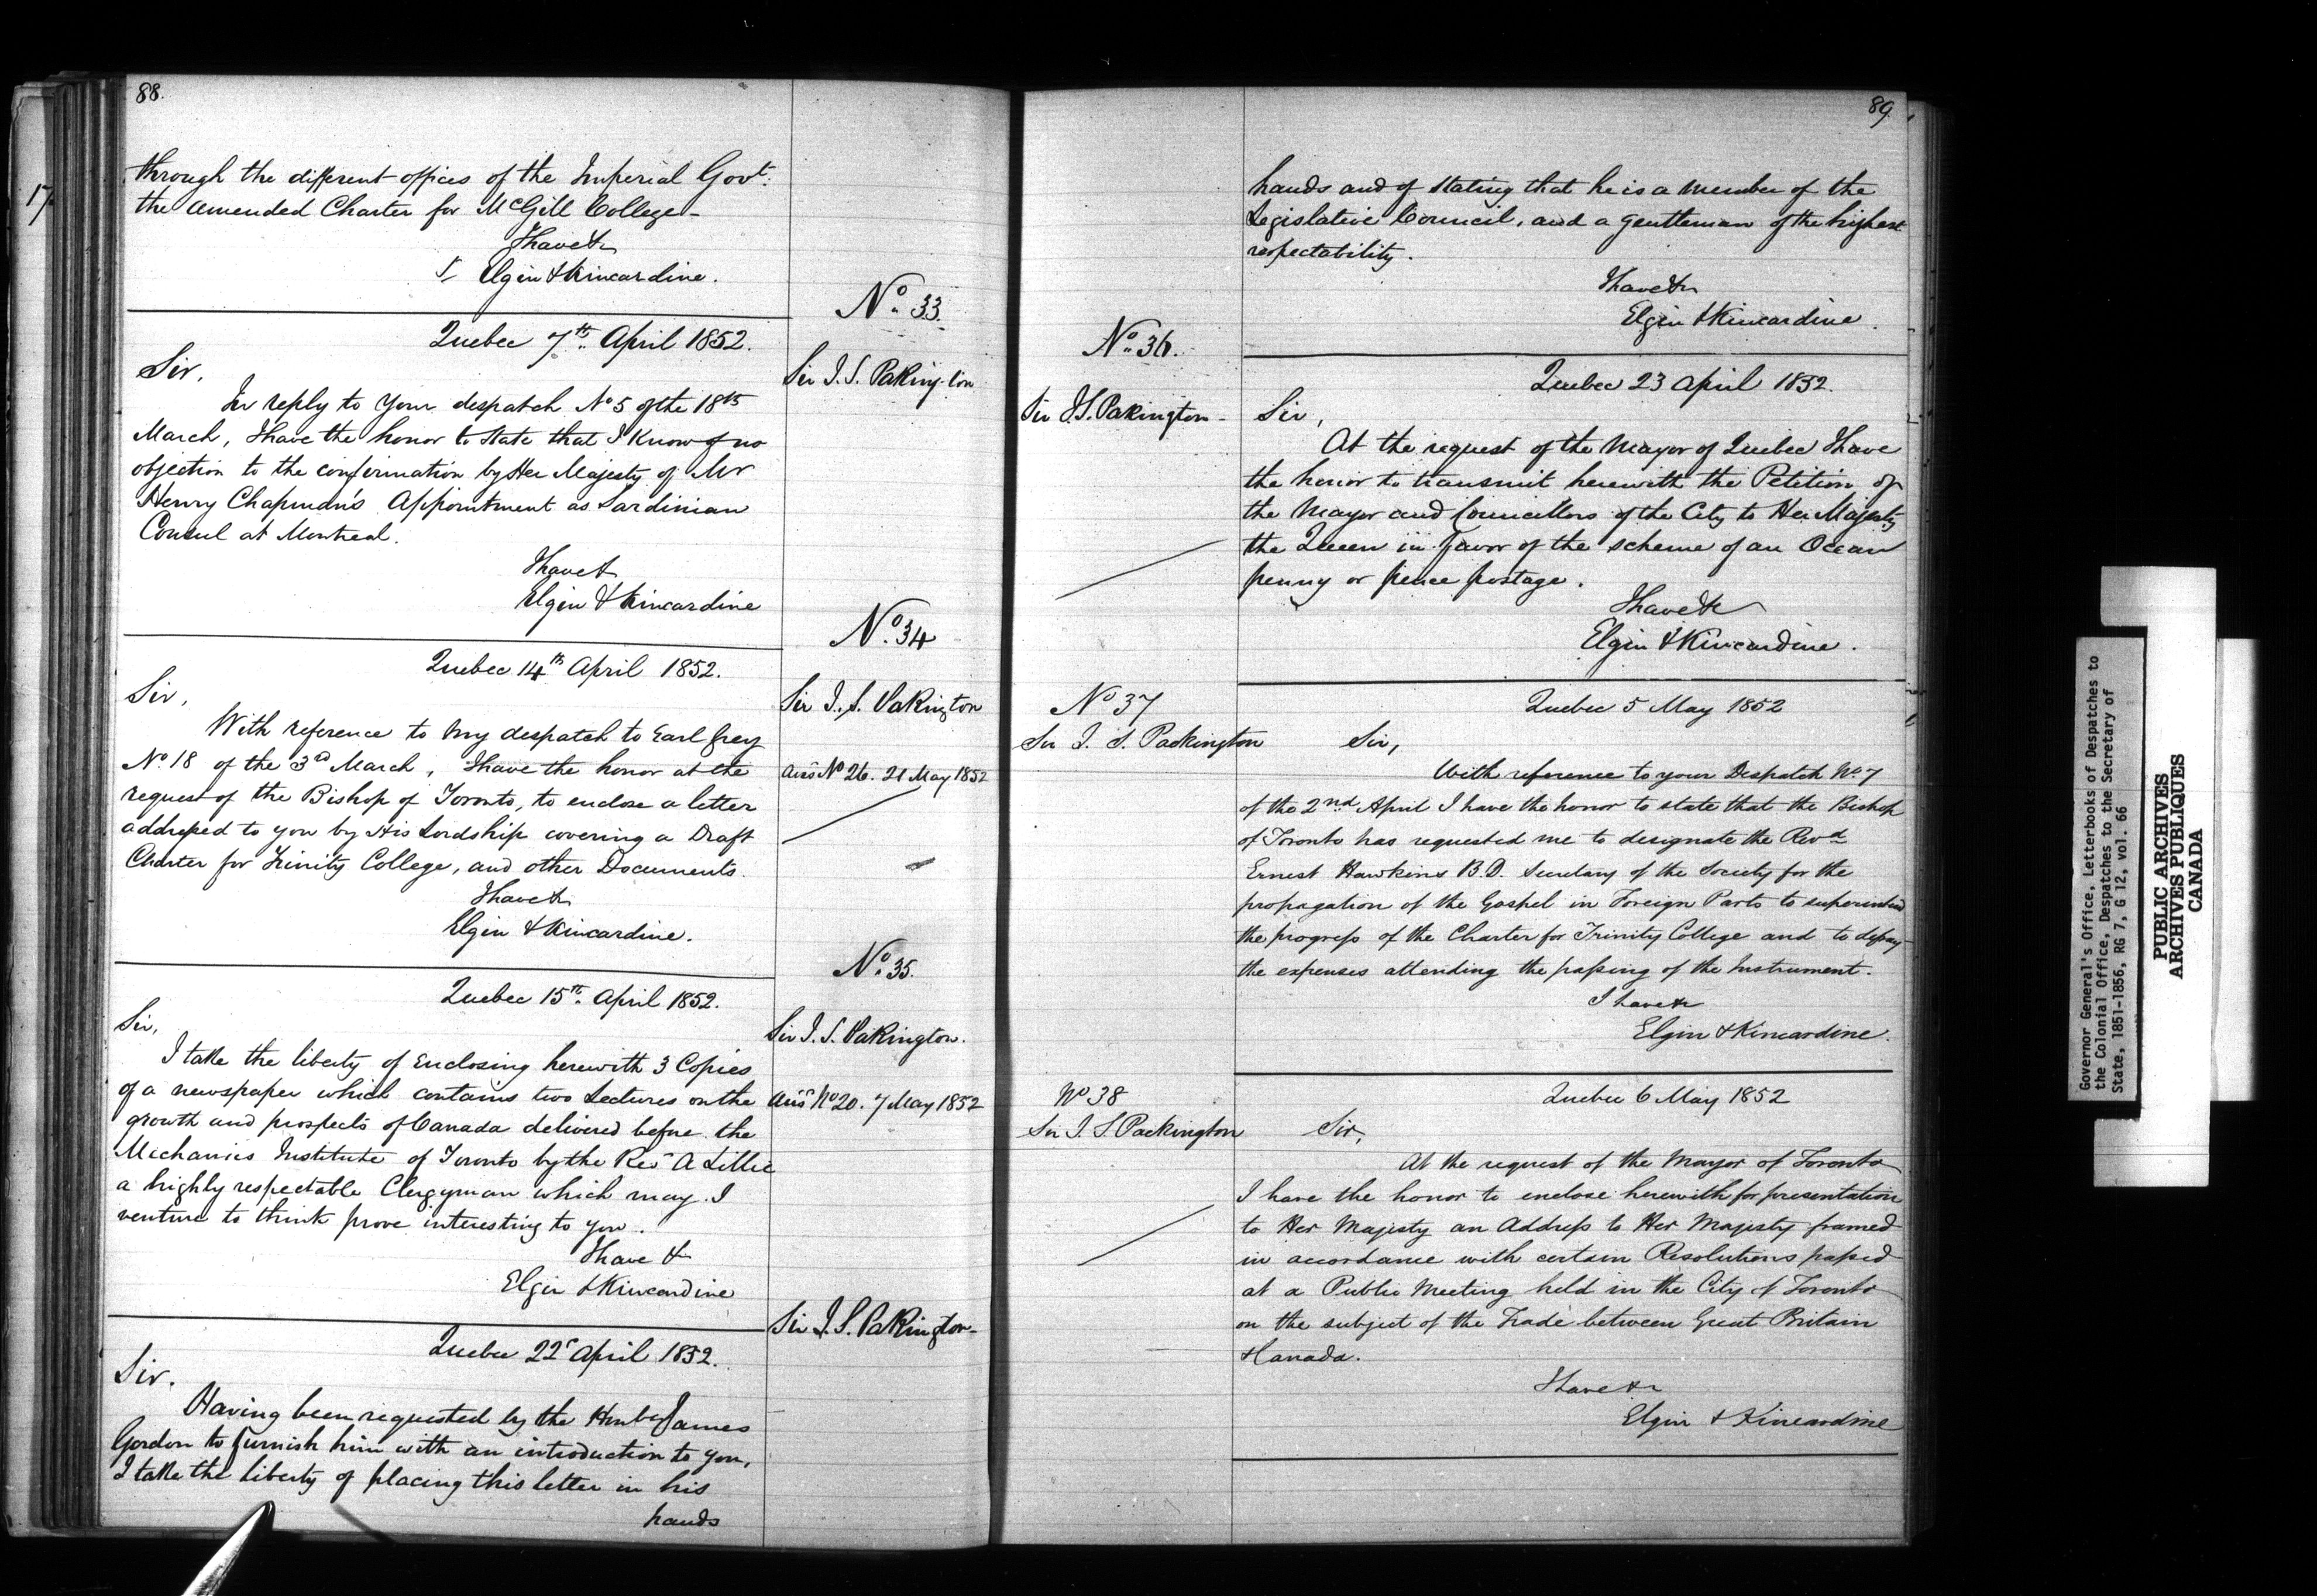 88.
through the different offices of the Imperial Govt.
the amended Charter for McGill College -
I have &
Elgin & Kincardine.
No. 33.
Quebec 7th. April 1852.
Sir J. S. Pakington
Sir,
In reply to your despatch No 5 of the 18th
March, I have the honor to state that I know of no
objection to the confirmation by Her Majesty of Mr
Henry Chapman's Appointment as Sardinian
Consul at Montreal.
I have &
Elgin & Kincardine
No. 34
Quebec 14th April 1852.
Sir J. S. Pakington
Ansd No 26. 21 May 1852
Sir,
With reference to my despatch to Earl Grey
No. 18 of the 3rd March, I have the honor at the
request of the Bishop of Toronto, to enclose a letter
addressed to you by His Lordship covering a Draft
Charter for Trinity College, and other Documents.
I have &
Elgin & Kincardine.
No. 35.
Quebec 15th. April 1852.
Sir J. S. Pakington.
Ansd No 20. 7 May 1852
Sir,
I take the liberty of Enclosing herewith 3 Copies
of a newspaper which contains two Lectures on the
growth and prospects of Canada delivered before the
Mechanics Institute of Toronto by the Revd A Lillie
a highly respectable Clergyman which may I
venture to think prove interesting to you.
I have &
Elgin & Kincardine
Sir J. S. Pakington-
Quebec 22d April 1852.
Sir.
Having been requested by the Honble James
Gordon to furnish him with an introduction to you,
I take the liberty of placing this letter in his
hands
17
89.
hands and of stating that he is a member of the
Legislative Council, and a gentleman of the highest
respectability.
I have &
Elgin & Kincardine.
No. 36.
Quebec 23 April 1852.
Sir J. S. Pakington-
Sir,
At the request of the Mayor of Quebec I have
the honor to transmit herewith the Petition of
the Mayor and Councillors of the City to Her Majesty
the Queen in favor of the scheme of an Ocean
penny or pence postage.
I have &
Elgin & Kincardine.
No 37
Quebec 5 May 1852
Sir J. S. Packington
Sir,
With reference to your Despatch No. 7
of the 2nd April I have the honor to state that the Bishop
of Toronto has requested me to designate the Revd
Ernest Hawkins B.D. Secretary of the Society for the
propagation of the Gospel in Foreign Parts to superintend
the progress of the Charter for Trinity College and to defray
the expenses attending the passing of the Instrument.
I have &
Elgin & Kincardine.
No 38
Quebec 6 May 1852
Sir J. S. Packington
Sir,
At the request of the Mayor of Toronto
I have the honor to enclose herewith for presentation
to Her Majesty an Address to Her Majesty framed
in accordance with certain Resolutions passed
at a Public Meeting held in the City of Toronto
on the subject of the Trade between Great Britain
& Canada.
I have &
Elgin & Kincardine
Governor General's Office, Letterbooks of Despatches to
the Colonial Office, Despatches to the Secretary of
State, 1851-1856, RG 7, G 12, vol. 66
PUBLIC ARCHIVES
ARCHIVES PUBLIQUES
CANADA